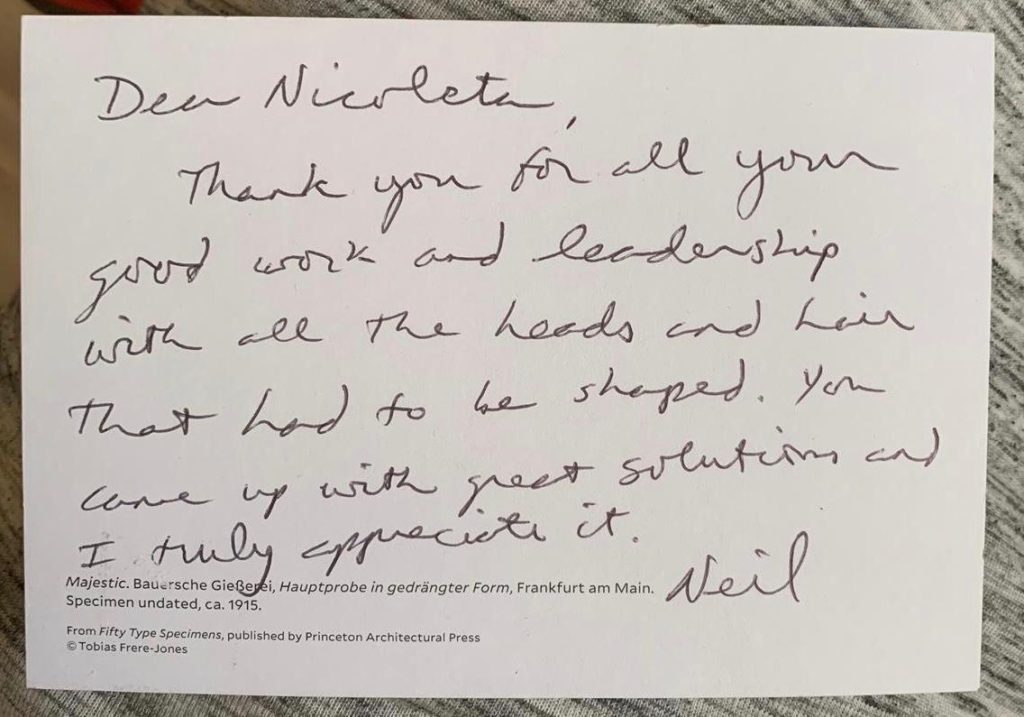 Dear Nicoleta,
Thank you for all your
good work and leadership
with all the heads and hair
that had to be shaped. You
came up with great solutions and
I truly appreciate it.
Neil
Majestic. Bauersche Gießerei, Hauptprobe in gedrängter Form, Frankfurt am Main.
Specimen undated, ca. 1915.
From Fifty Type Specimens, published by Princeton Architectural Press
© Tobias Frere-Jones